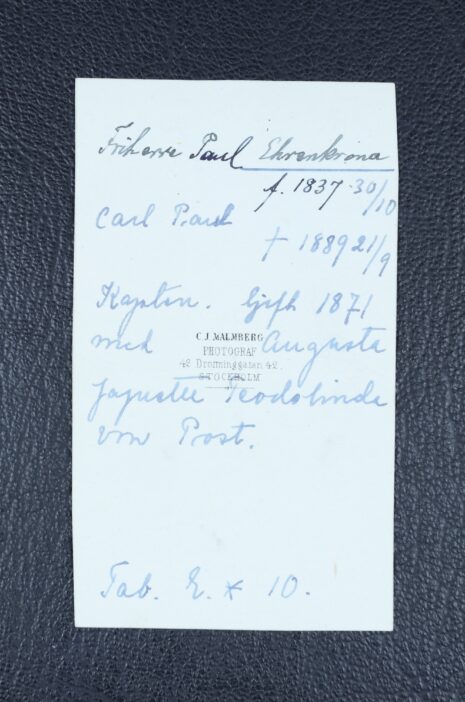 Friherre Paul Ehrenkrona
f. 1837 30/10
Carl Paul
† 1889 21/9
Kapten. Gift 1871
med Augusta
C J MALMBERG
PHOTOGRAF
42 Drottninggatan 42
STOCKHOLM
Teodolinda
von Post.
Tab. E. * 10.